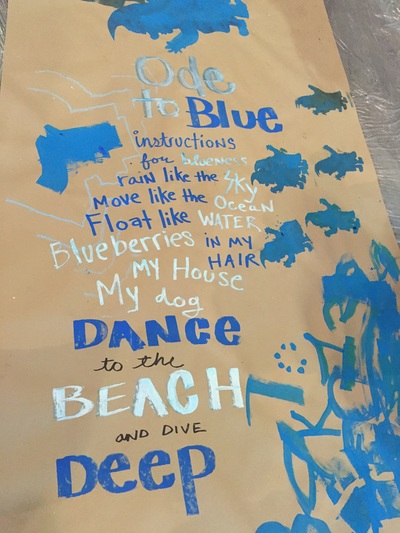 Ode
to Blue
instructions
for blueness
rain like the Sky
Move like the Ocean
Float like WATER
Blueberries in MY
HAIR
MY House
My dog
DANCe
to the
BEACH
AND DIVE
Deep